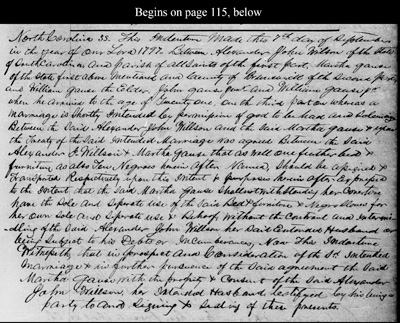 Begins on page 115, below
North Carolina SS. This Indenture Made this 7th day of September
in the year of our Lord 1797. Between Alexander John Wilson of the State
of South Carolina and parish of all Saints of the first part, Martha Gause
of the State first above Mentioned and County of Brunswick of the Second part
and William Gause the Elder John Gause and William Gause
when he arrives to the age of Twenty one On the third part on whereas a
Marriage is Shortly Intended by permission of god to be had and Solemnized
Between the Said Alexander John Willson and the Said Martha Gause & upon
the Treaty of the Said Intended Marriage was agreed Between the Said
Alexander J. Willson & Martha Gause that as well one feather bed &
furniture as also Negroes herein After Named Should be assigned &
Transported Respectively upon this Intent & purposes herein After Expressed
to the Intent that the Said Martha Gause Shall notwithstanding her Coverture
have the Sole and Seperate use of the Said Bed & furniture & Negro Slaves for
her own Sole and Seperate use & Behoof Without the Contract and Intermed-
dling of the Said Alexander John Willson her Said Entended Husband or
being Subject to his Debts or Incumberances, Now This Indenture
Witnesseth that in prospect and Consideration of the Sd. Intended
Marriage & in further pursuance of the Said agreement the Said
Martha Gause with the privity & Consent of the Said Alexander
John Willson her Intended Husband, testified by his being a
party to and Signing & Sealing of these presents